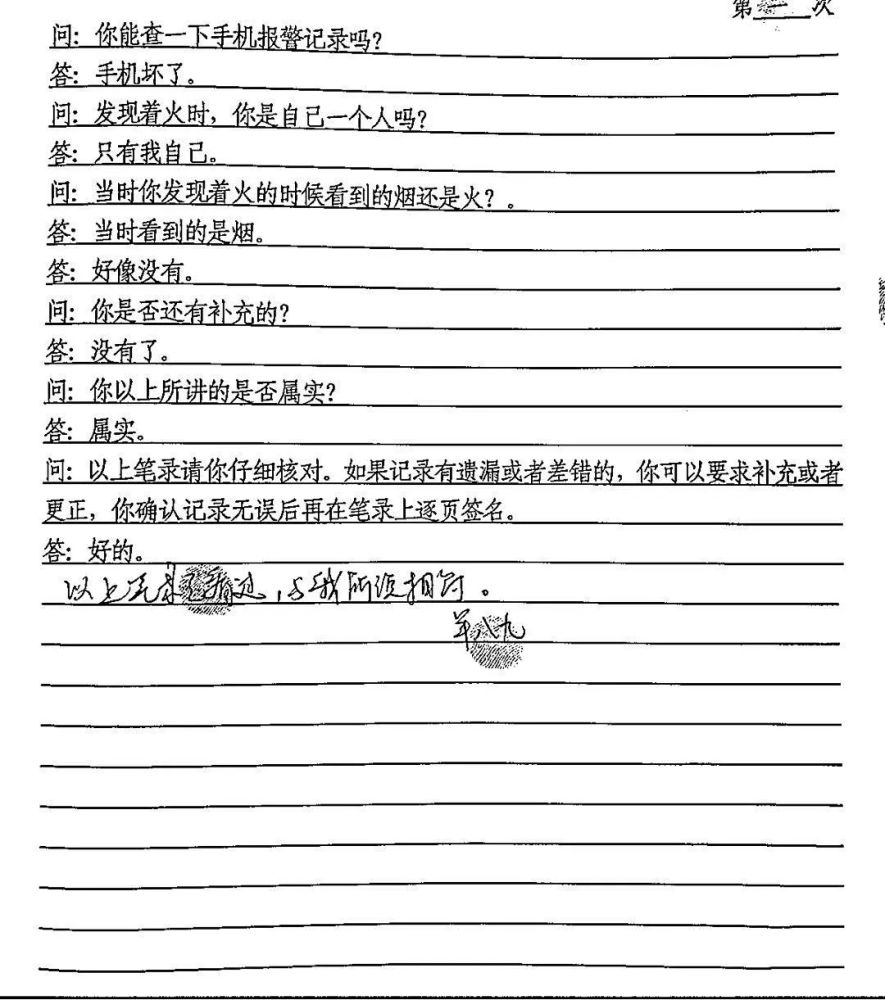 第 次
问：你能查一下手机报警记录吗？
答：手机坏了。
问：发现着火时，你是自己一个人吗？
答：只有我自己。
问：当时你发现着火的时候看到的烟还是火？。
答：当时看到的是烟。
答：好像没有。
问：你是否还有补充的？
答：没有了。
问：你以上所讲的是否属实？
答：属实。
问：以上笔录请你仔细核对。如果记录有遗漏或者差错的，你可以要求补充或者
更正，你确认记录无误后再在笔录上逐页签名。
答：好的。
以上笔录 看过，与我所说相符。
八九